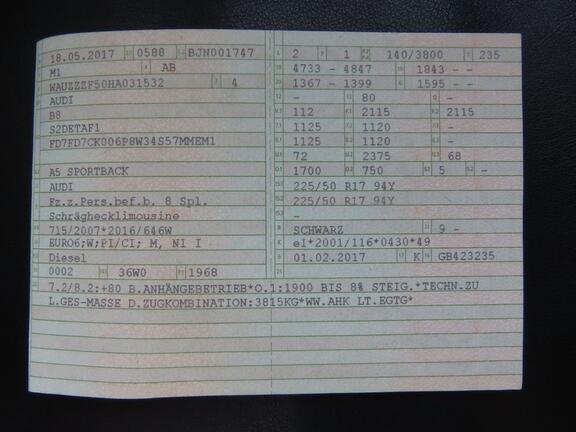 18.05.2017 0588 BJN001747
M1 AB
WAUZZZF50HA031532 4
AUDI
B8
S2DETAF1
FD7FD7CK006P8W34S57MMEM1
A5 SPORTBACK
AUDI
Fz.z.Pers.bef.b. 8 Spl.
Schräghecklimousine
715/2007*2016/646W
EURO6;W;PI/CI; M, NI I
Diesel
0002 36W0 1968
2 1 140/3800 235
4733 - 4847 1843 - -
1367 - 1399 1595 - -
- 80 -
112 2115 2115
1125 1120 -
1125 1120 -
72 2375 68
1700 750 5 -
225/50 R17 94Y
225/50 R17 94Y
-
SCHWARZ 9 -
e1*2001/116*0430*49
01.02.2017 K GB423235
7.2/8.2:+80 B.ANHÄNGEBETRIEB*O.1:1900 BIS 8% STEIG.*TECHN.ZU
L.GES-MASSE D.ZUGKOMBINATION:3815KG*WW.AHK LT.EGTG*